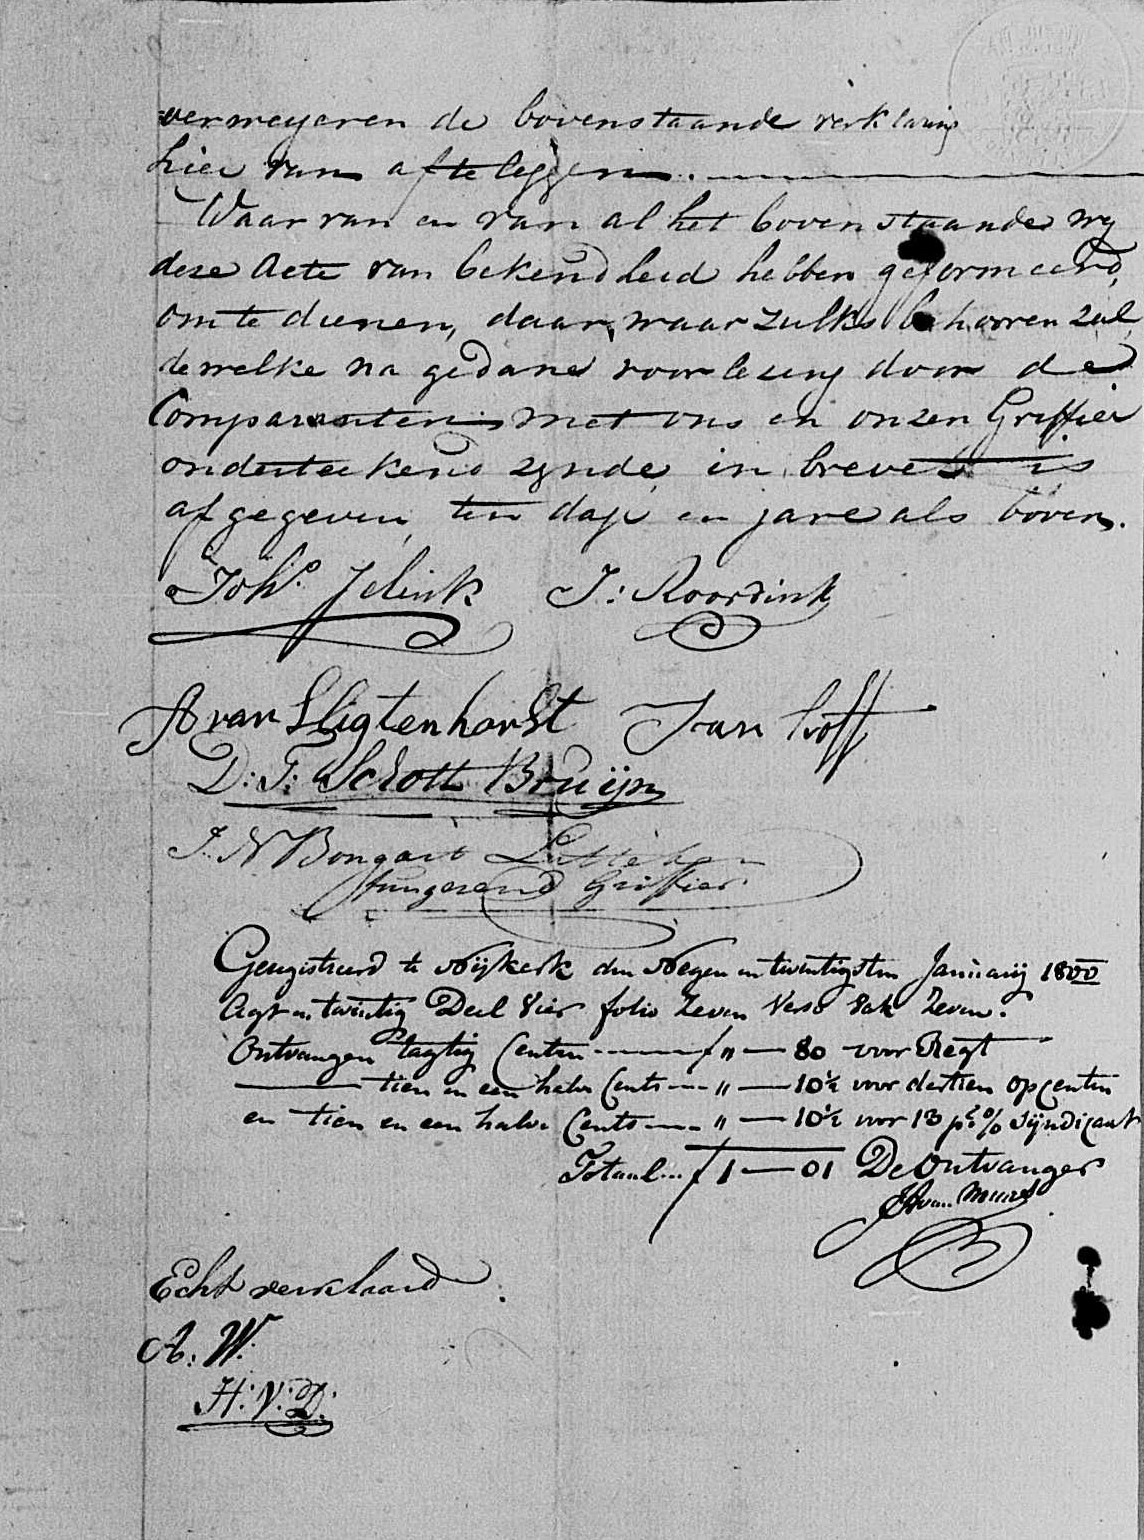 vermeyeren de bovenstaande verklaring
hier van afteleggen.
Waar van en van al het bovenstaande wy
deze Acte van bekendheid hebben geformeerd,
om te dienen, daar, waar zulks behooren zal,
dewelke na gedane voorlezing door de
Comparanten met ons en onzen Griffier
onderteekend zynde, in brevet is
afgegeven, ten dage en jare als boven.
Joh.s Jelink J: Roordink
A van Sligtenhorst Jan
D: J: Schott Bruijn
J. N Bongart
fungerend Griffier
Geregistreerd te Nijkerk den Negen en twintigsten Januarij 1800
Agt en twintig Deel Vier folio Zeven Verso Vak Zeven.
Ontvangen tagtig Centen ------ ƒ " — 80 voor Regt
——— tien en een halve Cents --- " — 10½ voor dertien opcenten
en tien en een halve Cents --- " — 10½ voor 13 pr % Sijndicaat
Totaal... ƒ 1 — 01 De Ontvanger
Echt verklaard
A: W:
H: V: D: